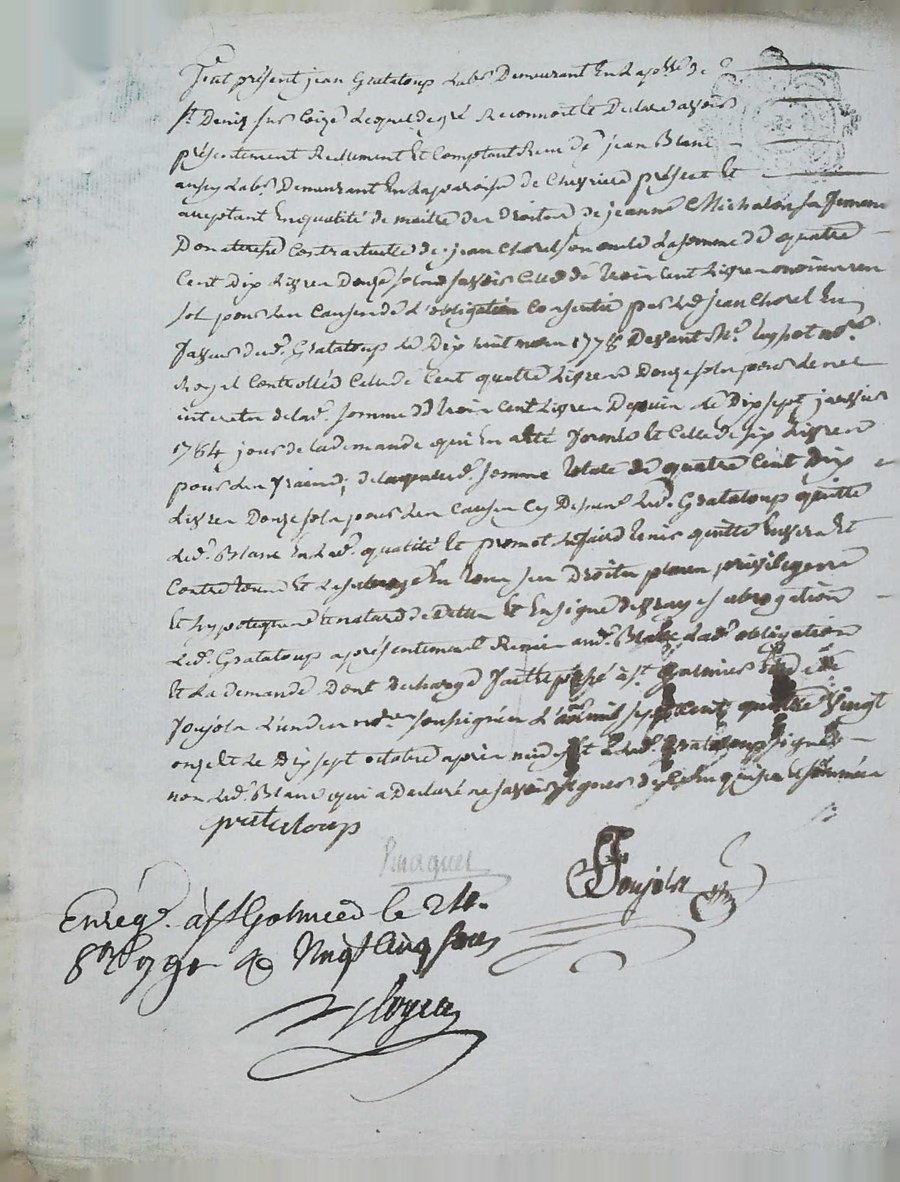 fut présent jean Grataloup lab.r Demeurant En la p.sse de
S.t Denis sur Coize Lequel de gré Reconnoit et Declare avoir
présentement Reellement et Comptant Receu de jean Blanc
aussy Lab.r Demeurant En la paroisse de Chevriere présent et
acceptant En qualité de maitre des droits de jeanne Michalon sa femme
Donateresse Contractuelle de jean Chorel son oncle La somme de quatre
Cent Dix Livres Douze sols savoir Celle de trois Cent Livres
sol pour les Causes de L'obligation Consentie par led. jean Chorel En
faveur dud. Grataloup Le Dix huit mars 1778 Devant M.e not.re
Royal Controllée Celle de Cent quatre Livres Douze sols pour le
interets de lad. somme de trois Cent Livres Depuis Le Dix sept janvier
1784 jour de la demande qui En a été formée et Celle de six Livres
pour les fraix; de laquelle d. somme totale de quatre Cent Dix
Livres Douze sols pour les Causes Cy Dessus Led. Grataloup quitte
Led. Blanc En lad. qualité et promet Le faire tenir quitte Envers Et
Contre tous Et Le subroge En tous ses Droits places privileges
Et hypoteques Et En signe de vraye subrogation
Led. Grataloup a présentement Remis aud. Blanc Lad. obligation
Et La demande Dont decharge fait et passé à S.t Galmier
Joujols L'un des not.res soussignés L'an mil sept cent quatre vingt
onze et Le Dix sept octobre après midy et Led. Grataloup signé
non Led. Blanc qui a Declaré ne savoir signer de ce Enquis et sommés
grataloup
Joujols
Enrég.é à S.t Galmier le 24.
8bre 1791 Vingt Cinq sous